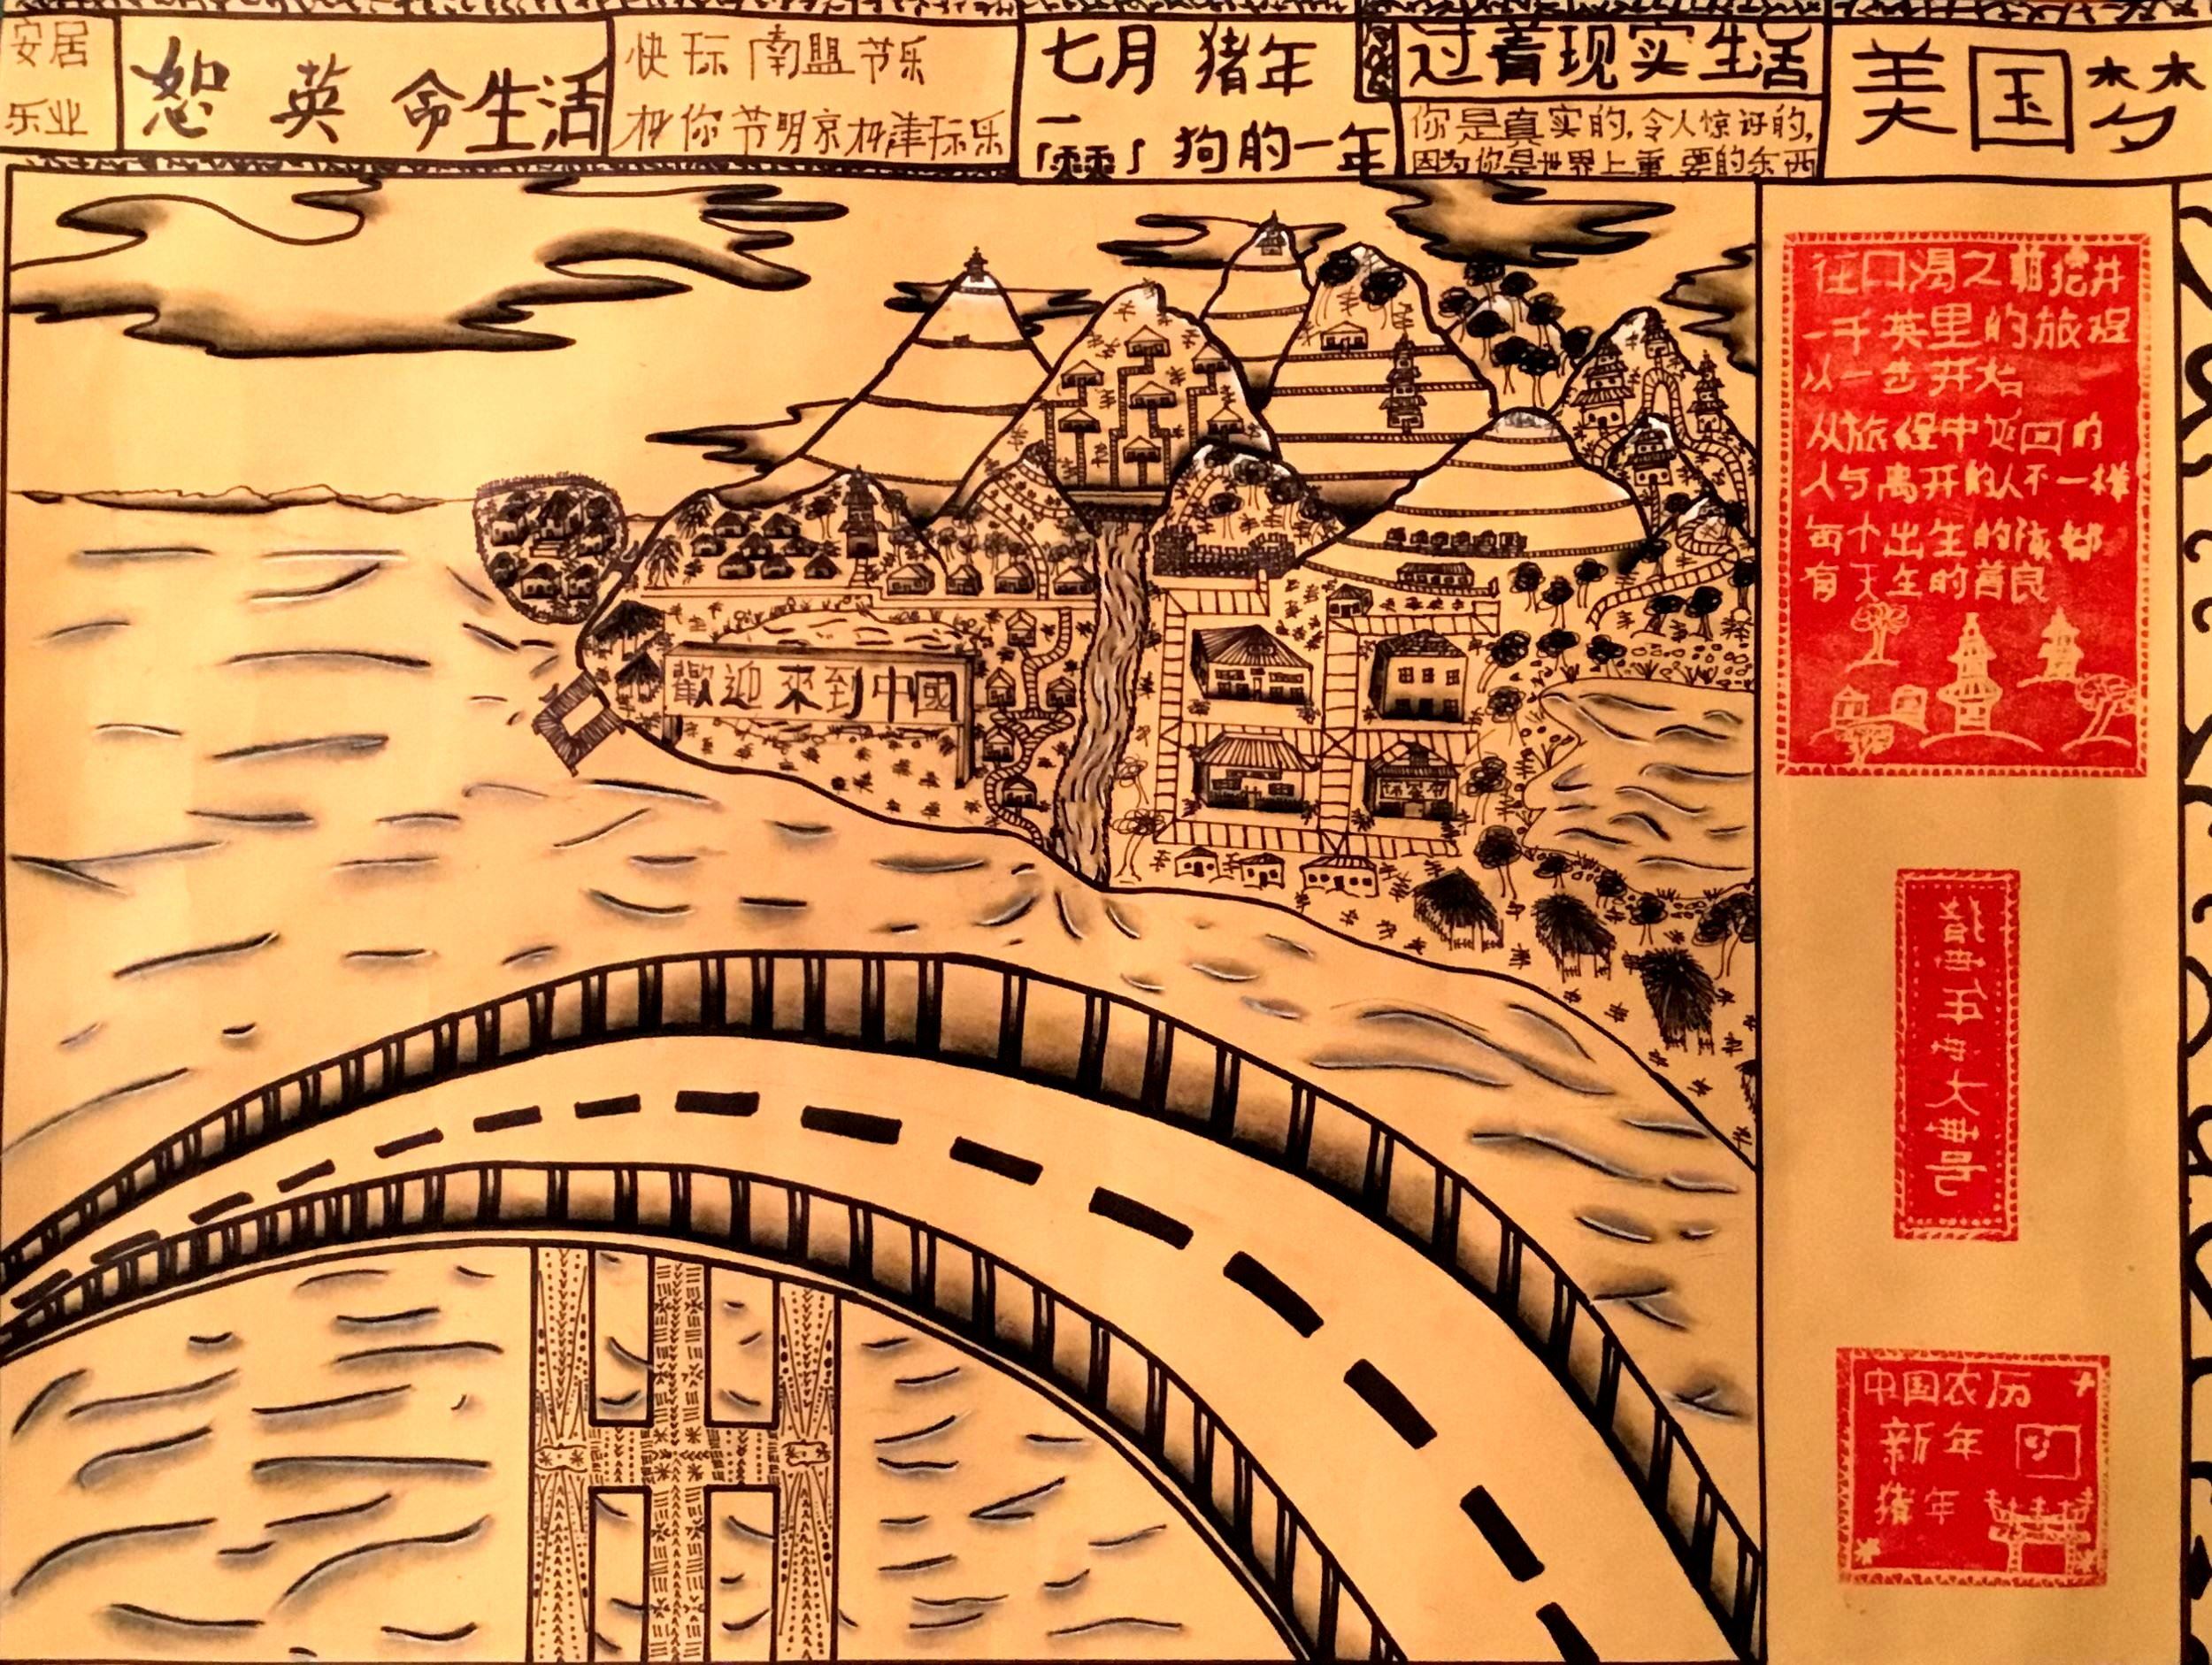 安居
乐业
恕 英 命生活
快玩南盟节乐
你节明京津玩乐
七月 猪年
一
狗的一年
过着现实生活
你是真实的,令人惊讶的,
因为你是世界上重要的东西
美国梦
歡迎來到中國
往口渴之前挖井
一千英里的旅程
从一步开始
从旅程中返回的
人与离开的人不一样
每个出生的孩都
有天生的善良
猪年大号
中国农历
新年
猪年